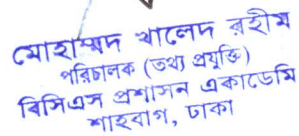 মোহাম্মদ খালেদ রহীম
পরিচালক (তথ্য প্রযুক্তি)
বিসিএস প্রশাসন একাডেমি
শাহবাগ, ঢাকা